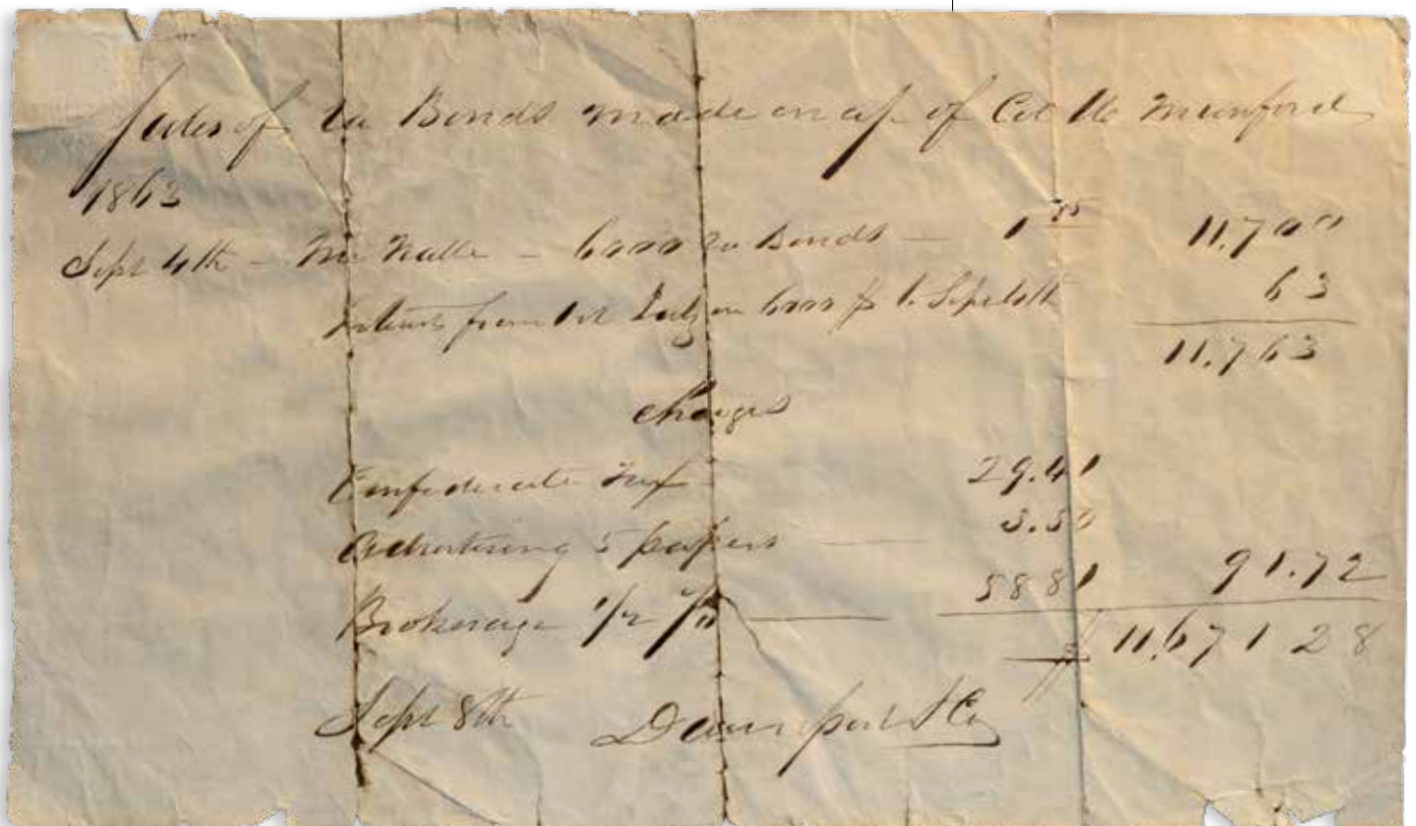 Sales of Va Bonds made on a/c of Col Munford
1863
Sept 4th – Mr Nalle – 6000 Va Bonds – 1 95 11,700
Interest from 1st July on 6000 to Sept 4th 63
11,763
Charges
Confederate Tax 29.41
Advertising 5 papers — 3.50
Brokerage 1/2 % — 58 81 91.72
$ 11,671 28
Sept 8th Davenport & Co